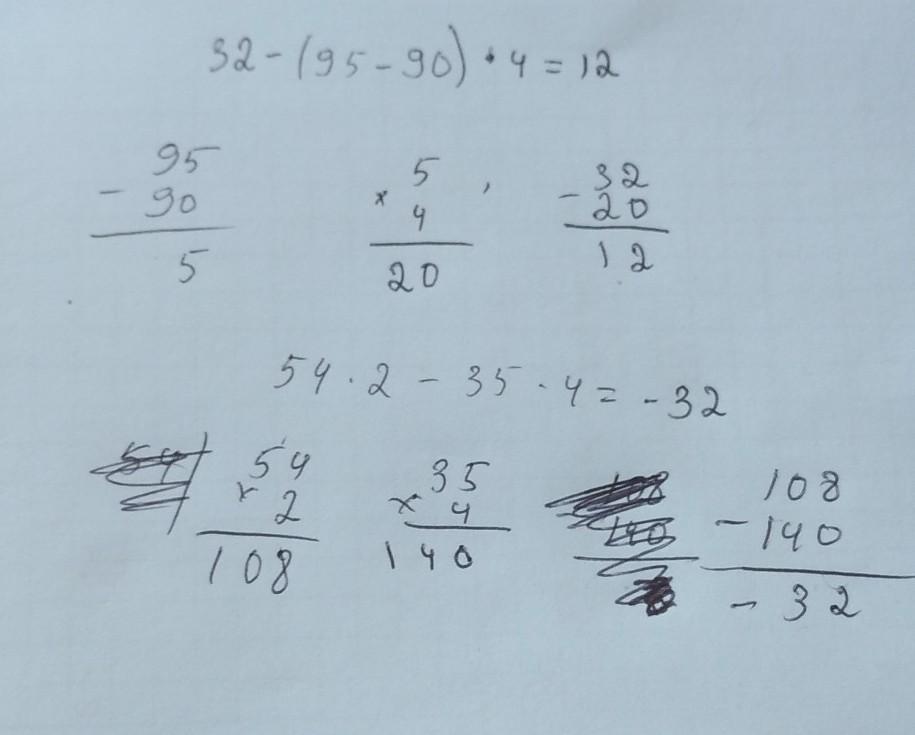 32 - (95 - 90) · 4 = 12
95
- 90
5
5
× 4
20
,
32
- 20
12
54 · 2 - 35 · 4 = -32
54
× 2
108
35
× 4
140
108
- 140
- 32